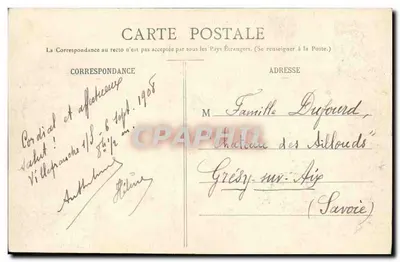 CARTE POSTALE
La Correspondance au recto n'est pas acceptée par tous les Pays Étrangers. (Se renseigner à la Poste.)
CORRESPONDANCE
ADRESSE
Cordial et affectueux
salut!
Villefranche s/S. 6 sept. 1908
8h 1/2
Hélène
M Famille Dufourd
Château des Aillouds
Grésy-sur-Aix
(Savoie)
CPAPHIL